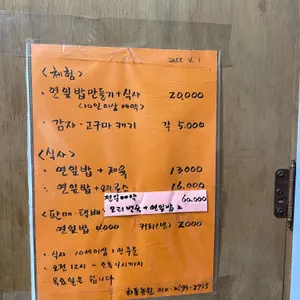 2022. 4. 1
<체험>
· 연잎밥만들기+식사 20,000
(10인이상 예약)
· 감자·고구마 캐기 각 5,000
<식사>
· 연잎밥 + 제육 13000
· 연잎밥 + 오리훈스 16,000
전일예약
오리백숙 + 연잎밥 2 60,000
<판매·택배>
연잎밥 4000 커피(냉) 2000
· 식사 10세이상 1인주문
· 오전 12시 - 오후 4시까지
· 목요일은 쉽니다